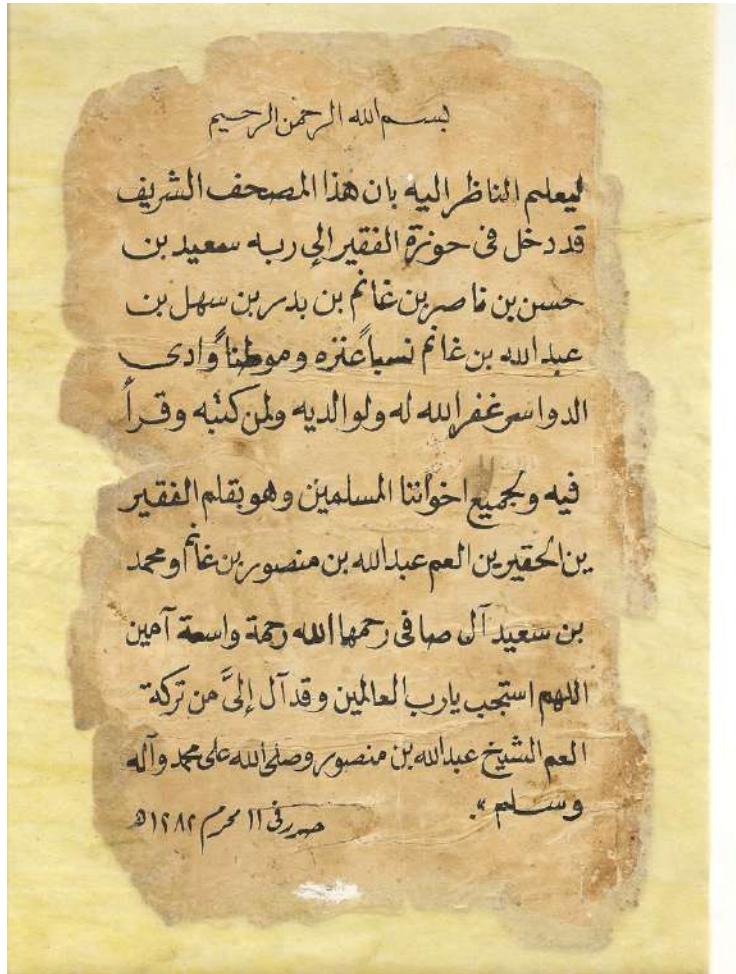 بسم الله الرحمن الرحيم
ليعلم الناظر اليه بان هذا المصحف الشريف
قد دخل فى حوزة الفقير إلى ربه سعيد بن
حسن بن ناصر بن غانم بن بدر بن سهل بن
عبد الله بن غانم نسباً عنزه وموطناً وادى
الدواسر غفر الله له ولوالديه ولمن كتبه وقرأ
فيه ولجميع اخواننا المسلمين وهو بقلم الفقير
ين الحقير ين العم عبدالله بن منصور بن غانم او محمد
بن سعيد آل صافى رحمها الله رحمة واسعة آمين
اللهم استجب يارب العالمين وقد آل إلىَّ من تركة
العم الشيخ عبدالله بن منصور وصلى الله على محمد وآله
وسلم
حرر فى ١١ محرم ١٢٨٢ھ